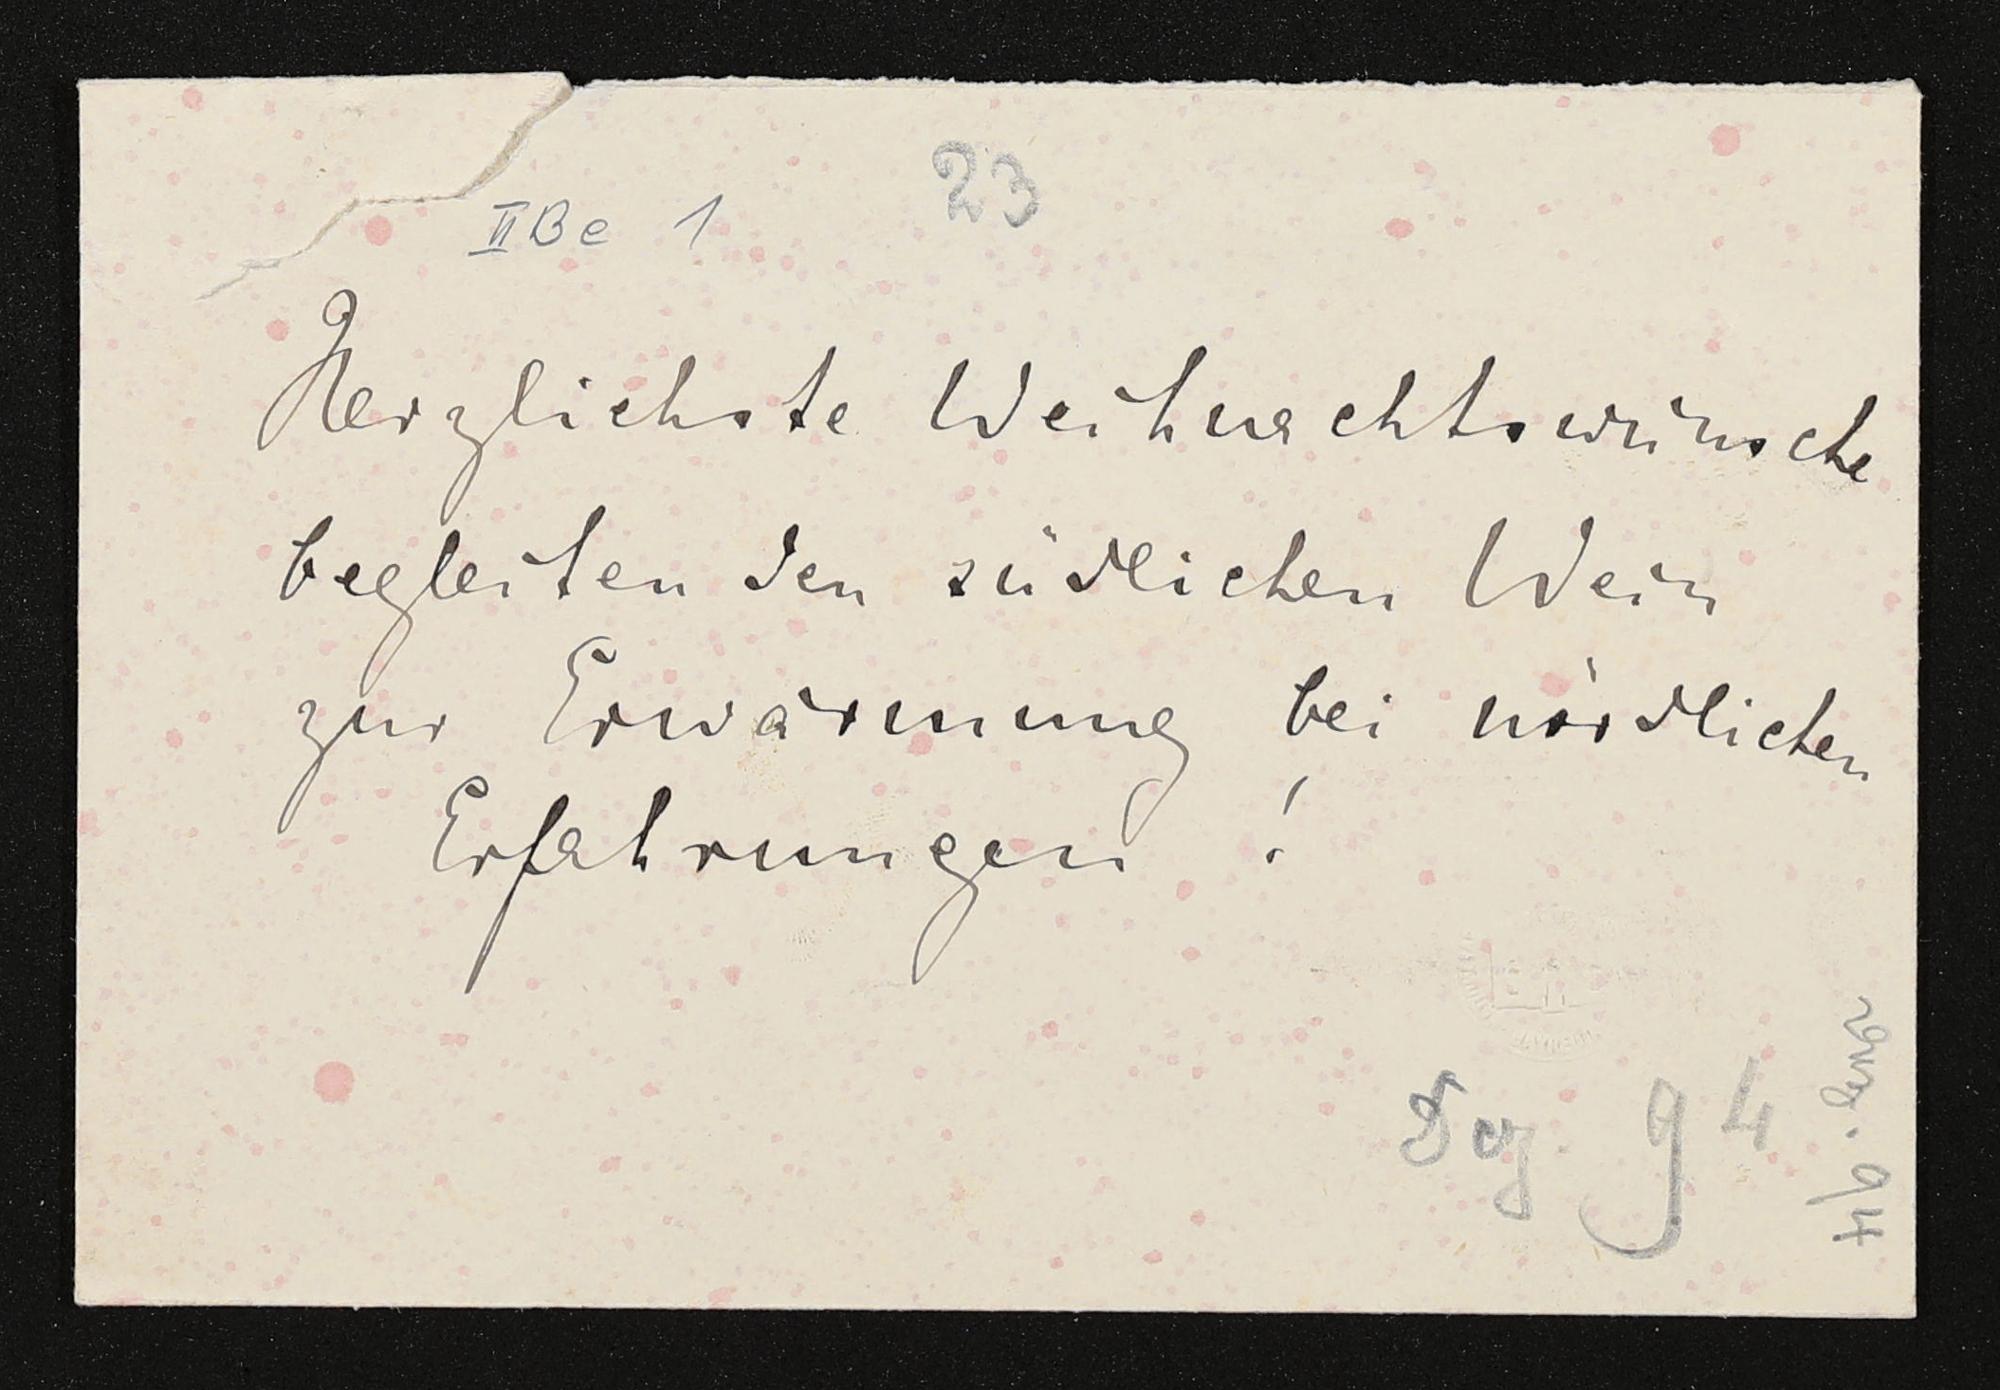 II Be 1 23
Herzlichste Weihnachtswünsche
begleiten den südlichen Wein
zur Erwärmung bei nördlichen
Erfahrungen !
Dez. 94